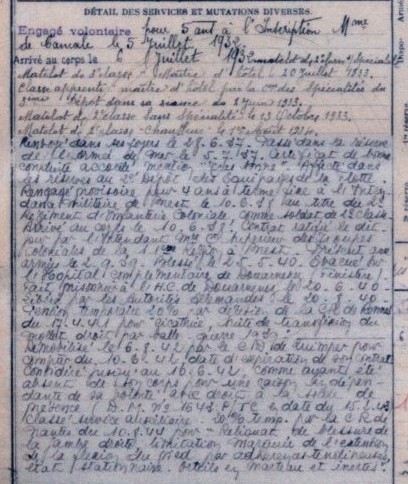 DÉTAIL DES SERVICES ET MUTATIONS DIVERSES.
Engagé volontaire pour 5 ans à l'Inscription Mme
de Cancale le 5 Juillet 1932.
Arrivé au corps le 6 Juillet 1932 Matelot de 3e Spécialité
Matelot de 3e classe Maître d'hôtel le 20 Juillet 1933.
Classé apprenti maître d'hôtel par la Con des Spécialités du
2ème Dépôt dans sa séance du 2 Juin 1933.
Matelot de 2e classe Sans Spécialité le 13 Octobre 1933.
Matelot de 2e classe Chauffeur le 1er Août 1934.
Renvoyé dans ses foyers le 28.6.37. Passé dans la réserve
de l'Armée de Mer le 5.7.37. Certificat de bonne
conduite accordé mention "très bonne". Affecté dans
les réserves au 2e Dépôt des Equipages de la Flotte
Rengagé provisoire pour 4 ans à terme fixe à l'Inten
dance militaire de Brest le 10.6.38 au titre du 2e
Régiment d'Infanterie Coloniale, comme soldat de 2e classe
Arrivé au corps le 10.6.38. Contrat validé le dit
jour par l'Intendant Mre Ct supérieur des Troupes
Coloniales de la Région à Brest. Présent aux
armées le 2.9.39. Blessé le 25.5.40. Evacué sur
l'Hôpital Complémentaire de Douarnenez (Finistère)
Fait prisonnier à l'H.C. de Douarnenez le 20.6.40.
Libéré par les autorités allemandes le 20.8.40.
Pension temporaire 20% par décision de la C.R. de Rennes
du 17.4.41 pour cicatrice, suite de transfixion du
mollet droit par balle guerre 1939.
Démobilisé le 6.8.42 par le C.D. de Quimper pour
compter du 10.6.42, date d'expiration de son contrat
Considéré jusqu'au 10.6.42, comme ayant été
absent de son corps pour une raison indépen
dante de sa volonté avec droit à la solde de
présence D.M. No 1643 en date du 15.2.43
Classé service auxiliaire. 20% temp. par la C.R. de
Nantes du 10.8.44 pour Reliquat de blessure de
la jambe droite, limitation marquée de l'extension
de la flexion du pied par adhérences tendineuses,
état stationnaire. Orteils en marteau et inertes.